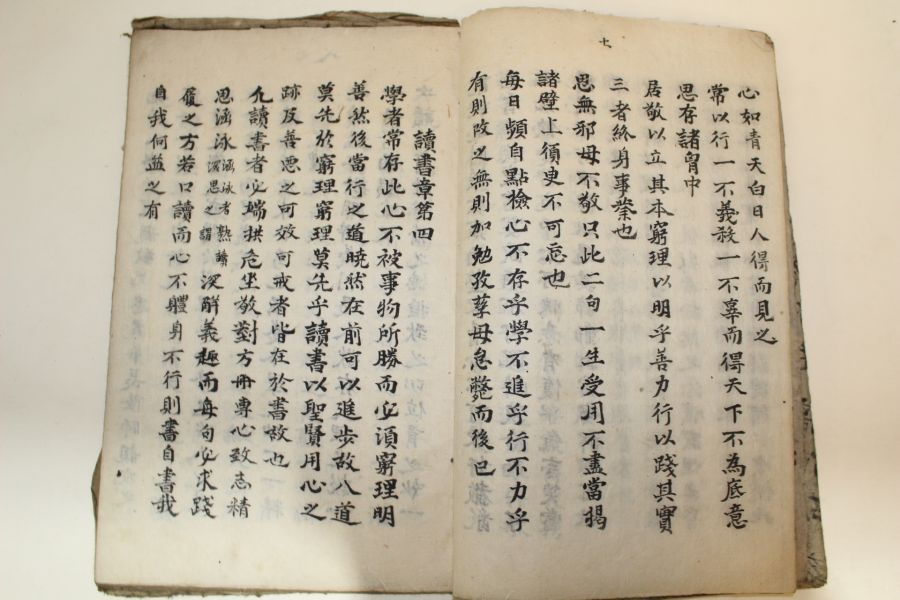 心如青天白日人得而見之
常以行一不義殺一不辜而得天下不為底意
思存諸胷中
居敬以立其本窮理以明乎善力行以踐其實
三者終身事業也
思無邪毋不敬只此二句一生受用不盡當揭
諸壁上須臾不可忘也
每日頻自點檢心不存乎學不進乎行不力乎
有則改之無則加勉孜孳毋怠斃而後已
讀書章第四
學者常存此心不被事物所勝而必須窮理明
善然後當行之道曉然在前可以進步故入道
莫先於窮理窮理莫先乎讀書以聖賢用心之
跡及善悪之可效可戒者皆在於書故也
凡讀書者必端拱危坐敬對方冊專心致志精
思涵泳涵泳者熟讀深思之謂深解義趣而每句必求踐
履之方若口讀而心不體身不行則書自書我
自我何益之有